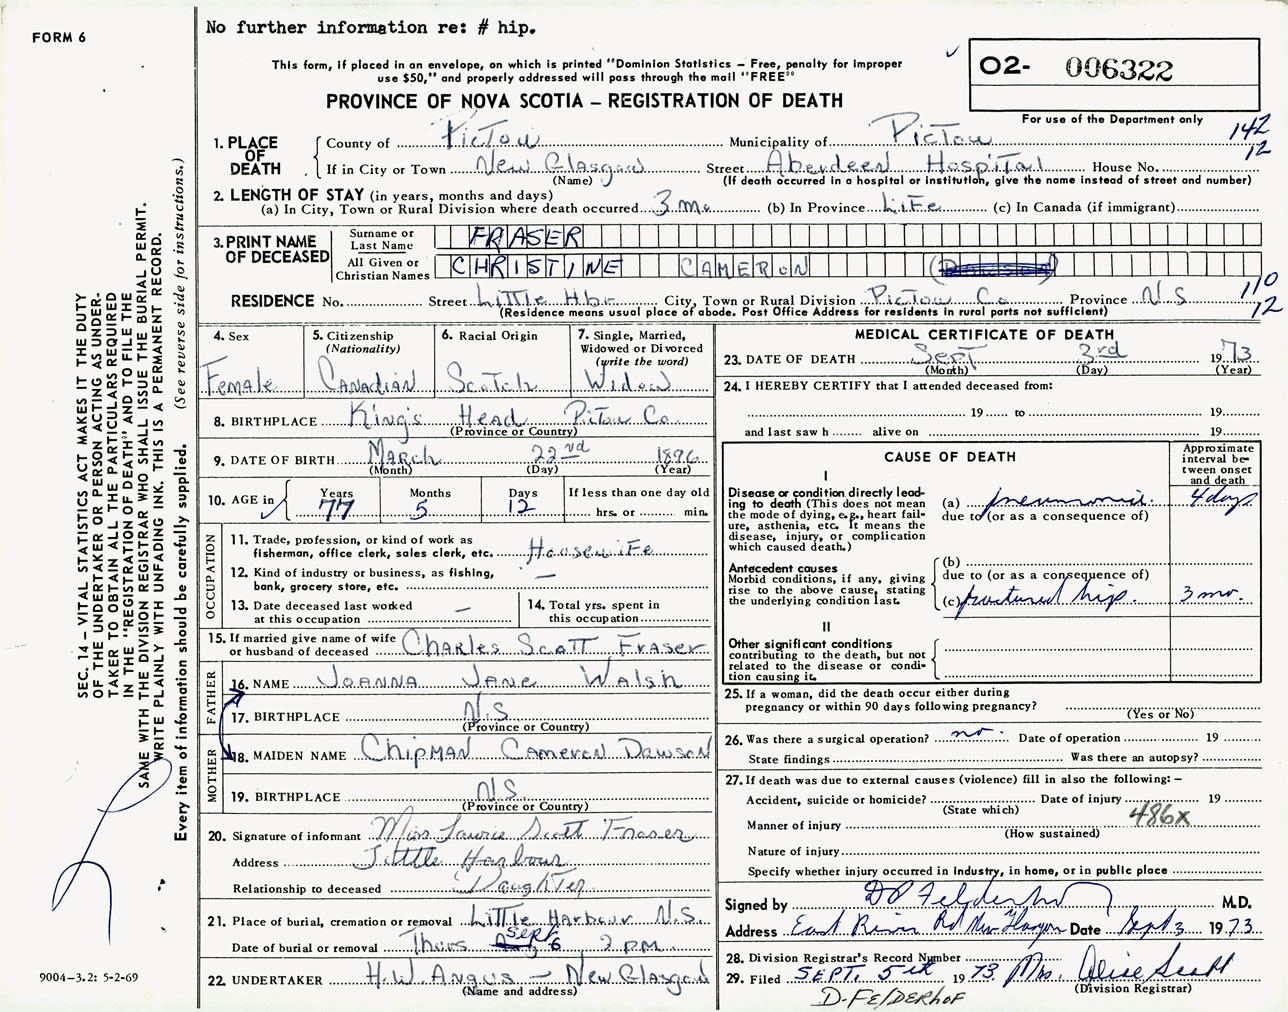 FORM 6
No further information re: # hip.
This form, if placed in an envelope, on which is printed "Dominion Statistics – Free, penalty for improper
use $50," and properly addressed will pass through the mail "FREE"
PROVINCE OF NOVA SCOTIA – REGISTRATION OF DEATH
02- 006322
For use of the Department only
142
12
1. PLACE OF DEATH
County of Pictou Municipality of Pictou
If in City or Town New Glasgow Street Aberdeen Hospital House No.
(Name) (If death occurred in a hospital or institution, give the name instead of street and number)
2. LENGTH OF STAY (in years, months and days)
(a) In City, Town or Rural Division where death occurred 3 mo (b) In Province Life (c) In Canada (if immigrant)
3. PRINT NAME OF DECEASED
Surname or Last Name FRASER
All Given or Christian Names CHRISTINE CAMERON
110
12
RESIDENCE No. Street Little Hbr City, Town or Rural Division Pictou Co Province N.S
(Residence means usual place of abode. Post Office Address for residents in rural parts not sufficient)
4. Sex
Female
5. Citizenship
(Nationality)
Canadian
6. Racial Origin
Scotch
7. Single, Married,
Widowed or Divorced
(write the word)
Widow
8. BIRTHPLACE King's Head Pictou Co.
(Province or Country)
9. DATE OF BIRTH March 22nd 1896
(Month) (Day) (Year)
10. AGE in
Years Months Days If less than one day old
77 5 12 hrs. or min.
OCCUPATION
11. Trade, profession, or kind of work as
fisherman, office clerk, sales clerk, etc. Housewife
12. Kind of industry or business, as fishing,
bank, grocery store, etc. —
13. Date deceased last worked
at this occupation —
14. Total yrs. spent in
this occupation
15. If married give name of wife
or husband of deceased Charles Scott Fraser
FATHER
16. NAME Joanna Jane Walsh
17. BIRTHPLACE N.S
(Province or Country)
MOTHER
18. MAIDEN NAME Chipman Cameron Dawson
19. BIRTHPLACE N S
(Province or Country)
20. Signature of informant Miss Laurie Scott Fraser
Address Little Harbour
Relationship to deceased Daughter
21. Place of burial, cremation or removal Little Harbour N.S.
Date of burial or removal Thurs Sept 6 2 P.M.
22. UNDERTAKER H.W. Angus – New Glasgow
(Name and address)
MEDICAL CERTIFICATE OF DEATH
23. DATE OF DEATH Sept 3rd 1973
(Month) (Day) (Year)
24. I HEREBY CERTIFY that I attended deceased from:
19 to 19
and last saw h alive on 19
CAUSE OF DEATH
Approximate
interval be-
tween onset
and death
I
Disease or condition directly lead-
ing to death (This does not mean
the mode of dying, e.g., heart fail-
ure, asthenia, etc. It means the
disease, injury, or complication
which caused death.)
(a) pneumonia. 4 days
due to (or as a consequence of)
Antecedent causes
Morbid conditions, if any, giving
rise to the above cause, stating
the underlying condition last.
(b)
due to (or as a consequence of)
(c) fractured hip. 3 mo.
II
Other significant conditions
contributing to the death, but not
related to the disease or condi-
tion causing it.
25. If a woman, did the death occur either during
pregnancy or within 90 days following pregnancy?
(Yes or No)
26. Was there a surgical operation? no. Date of operation 19
State findings Was there an autopsy?
27. If death was due to external causes (violence) fill in also the following: –
Accident, suicide or homicide? Date of injury 19
(State which)
486x
Manner of injury
(How sustained)
Nature of injury
Specify whether injury occurred in industry, in home, or in public place
Signed by D P Felderhof M.D.
Address East River Rd New Glasgow Date Sept 3 1973
28. Division Registrar's Record Number
29. Filed SEPT. 5th 1973 Mrs. Alise Scott
(Division Registrar)
D-FElDERhoF
SEC. 14 – VITAL STATISTICS ACT MAKES IT THE DUTY
OF THE UNDERTAKER OR PERSON ACTING AS UNDER-
TAKER TO OBTAIN ALL THE PARTICULARS REQUIRED
IN THE "REGISTRATION OF DEATH" AND TO FILE THE
SAME WITH THE DIVISION REGISTRAR WHO SHALL ISSUE THE BURIAL PERMIT.
WRITE PLAINLY WITH UNFADING INK. THIS IS A PERMANENT RECORD.
Every item of information should be carefully supplied. (See reverse side for instructions.)
9004-3.2: 5-2-69